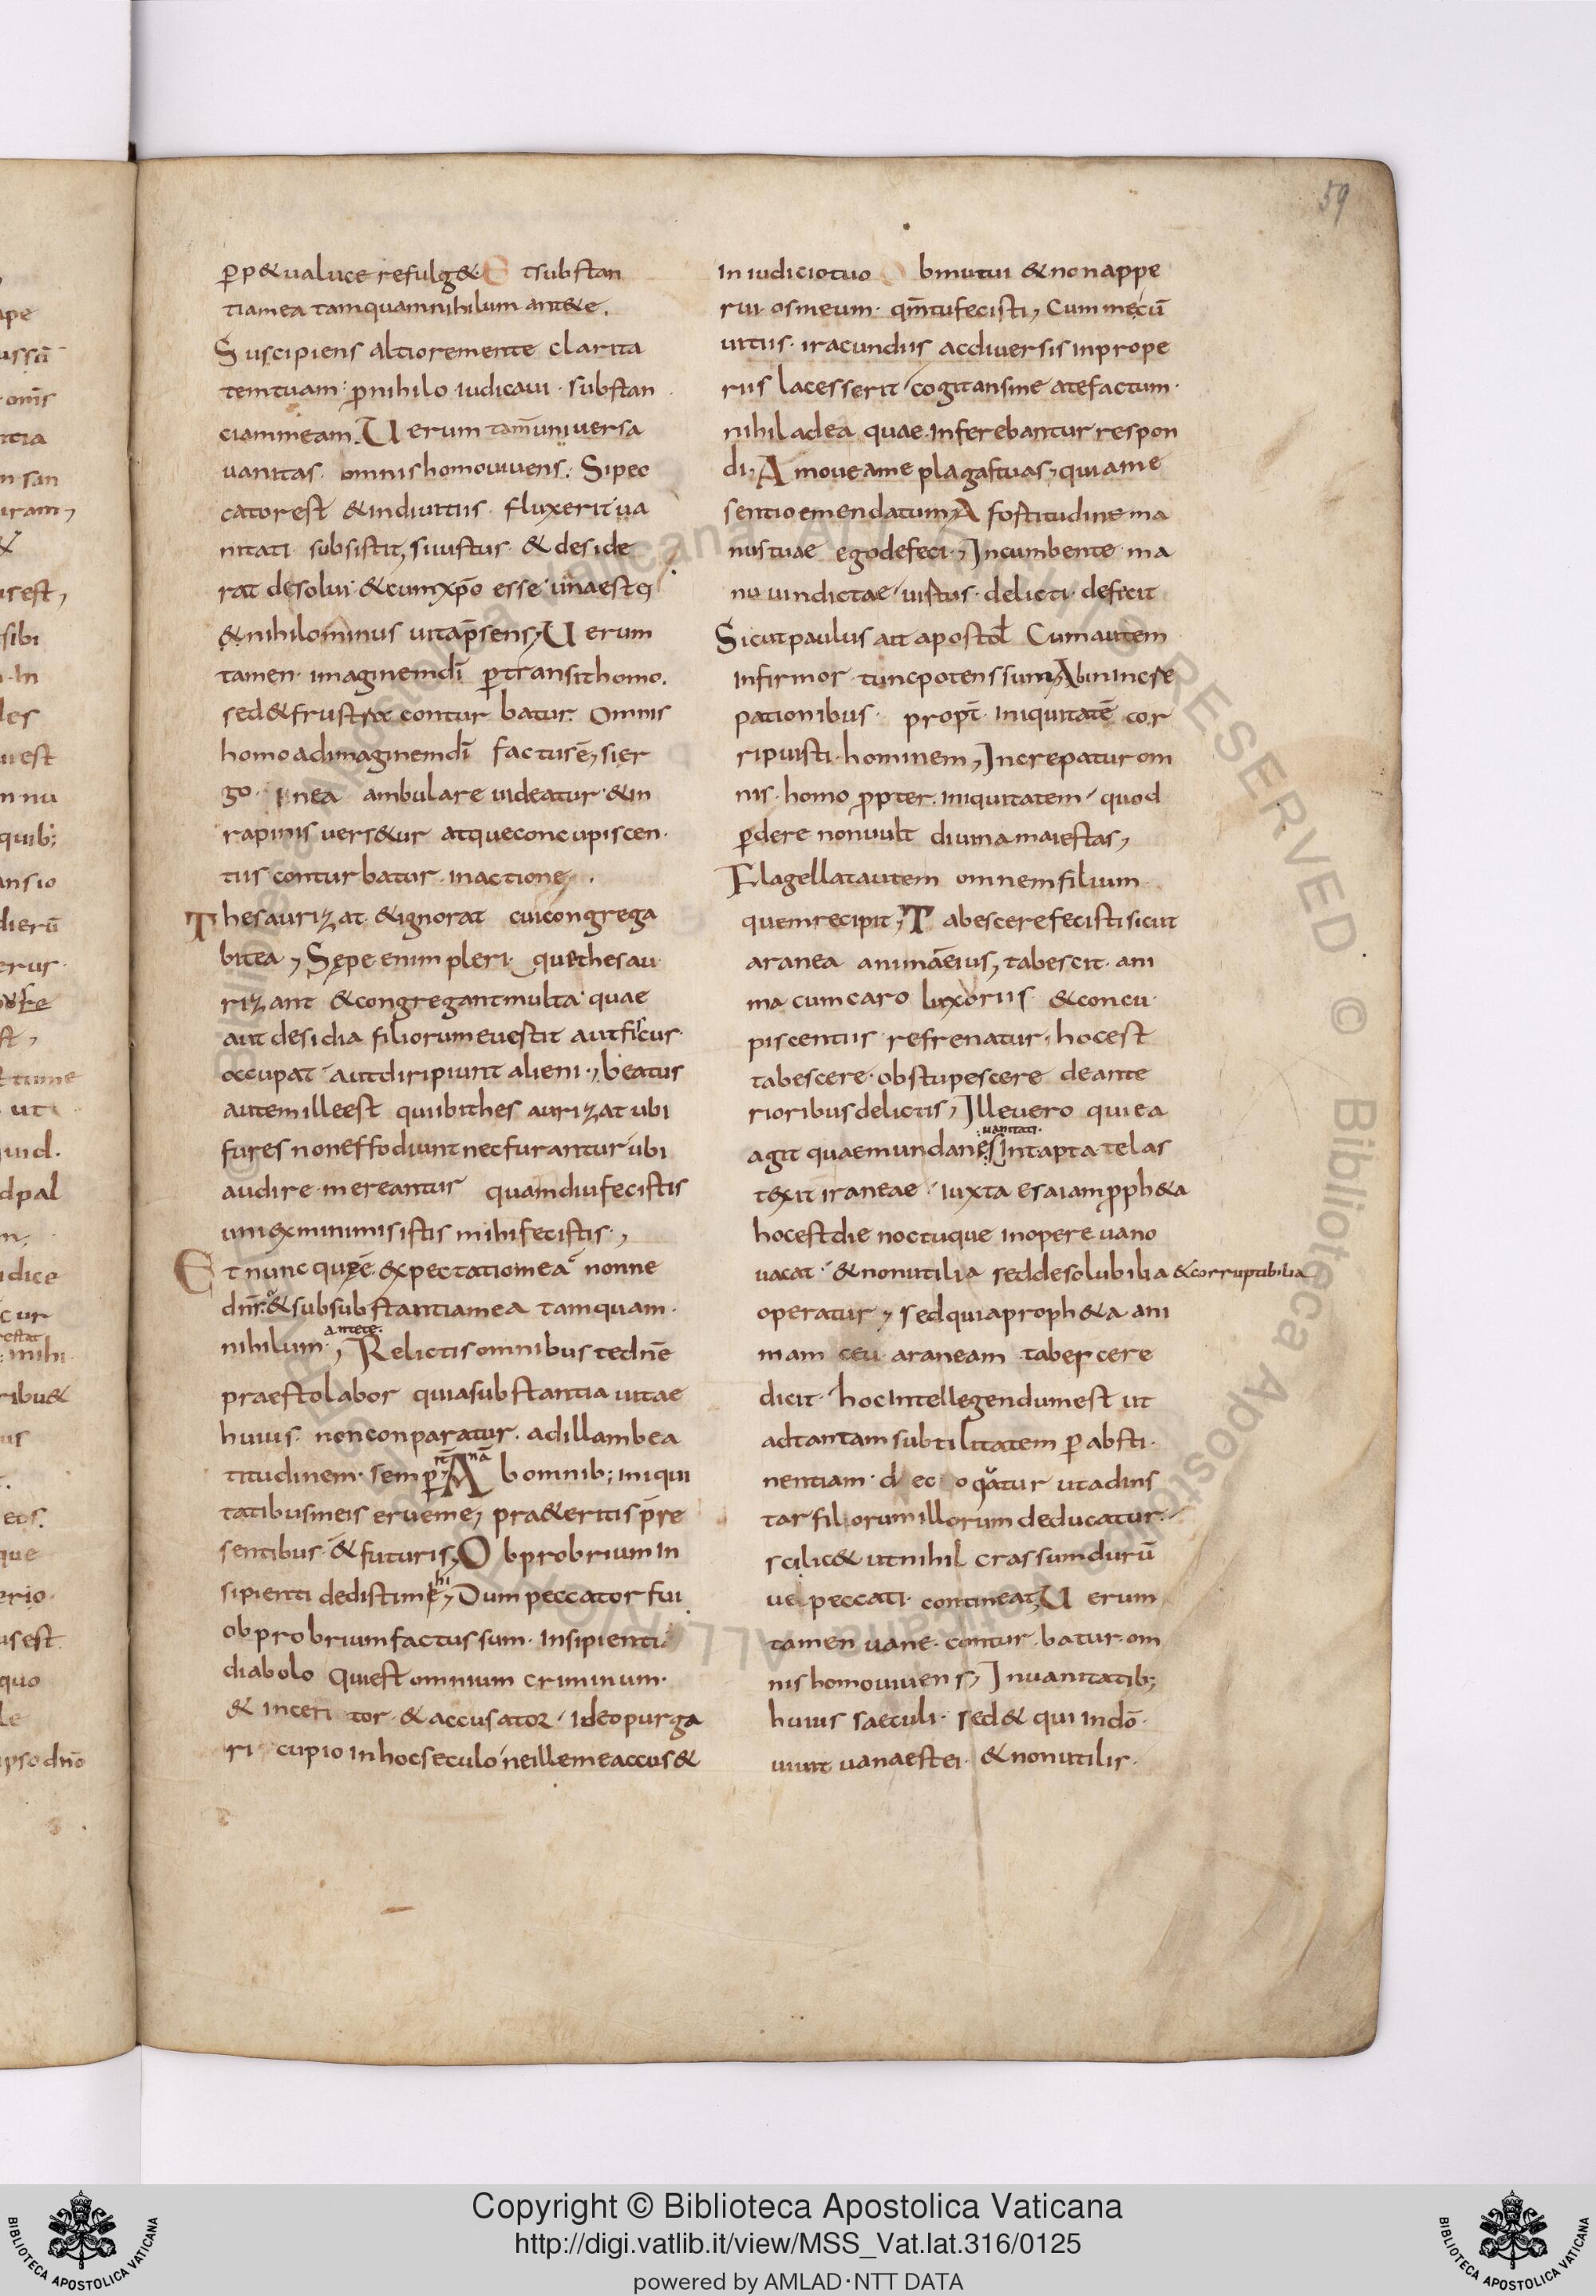 59
ꝑp&ualuce refulg& E tsubstan
tiamea tamquamnihilum ant&e.
Suscipiens altioremente clarita
temtuam· ꝓnihilo iudicaui· substan
ciammeam. Uerum tam̄uniuersa
uanitas. omnishomouiuens. Sipec
catorest &indiuitiis· fluxerit ua
nitati· subsistit, siiustus· & deside
rat desolui· &cumxp̄o esse· uanaest ei
&nihilominus uitap̄sens, Uerum
tamen· imaginemdī ꝑtransithomo.
sed&frustra contur batur. Omnis
homoadimaginemdī factusē, sier
go· inea ambulare uideatur· &in
rapinis uers&ur atqueconcupiscen·
tiis conturbatur· inactione,
Thesaurizat· &ignorat cuicongrega
bitea, Sępe enim pleri· quithesau
rizant &congregantmulta· quae
aut desidia filiorumeuestit autfiscus·
occupat· autdiripiunt alieni·, beatus
autemilleest quiibithes aurizat ubi
fures noneffodiunt necfurantur· ubi
audire· mereantur quamdiufecistis
uniexminimisistis mihifecistis,
Et nunc quęē· expectatiomea nonne
dn̄s·&subsubstantiamea tamquam·
nihilum· antete·, Relictisomnibus tedn̄e
praestolabor quiasubstantia uitae
huius· nonconparatur· adillambea
titudinem· semꝑ, Abomnib; iniqui
tatibusmeis erueme, pra&eritis p̄re
sentibus· &futuris, Obprobriumin
sipienti dedistime, hi Dumpeccator fui
obprobriumfactussum· Insipienti
diabolo Quiest omnium criminum·
& incen tor· & accusator· Ideopurga
ri cupio inhocseculo neillemeaccus&
in iudiciotuo O bmutui &nonappe
rui· osmeum· qm̄tufecisti, Cummecū
uitiis· iracundiis acdiuersisinprope
riis lacesserit· cogitansine atefactum·
nihiladea quae· inferebantur respon
di, Amoueame plagastuas, quiame
sentioemendatum, A fostitudinema
nustuae egodefeci·, Incumbente· ma
nu uindictae· uistus· delicti· defecit
Sicutpaulus ait apostoł Cumautem
infirmor· tuncpotenssum, Abinincre
pationibus· propt̄· iniquitatē cor
ripuisti· hominem, Increpatur om
nis· homo ꝓpter· iniquitatem· quod
ꝑdere nonuult diuinamaiestas,
Flagellatautem omnemfilium
quemrecipit, Tabescerefecistisicut
aranea animāeius, tabescit· ani
ma cumcaro luxoriis· &concu
piscentiis· refrenatur· hocest
tabescere· obstupescere deante
rioribusdelictis, Illeuero quiea
uanitati·
agit quaemundanęsintapta telas
texit iraneae· iuxta esaiamꝓph&a
hocestdie noctuque inopere uano
uacat· &nonutilia seddesolubilia &corruptibilia
operatur, sedquiaproph&a· ani
mam ceu· araneam tabercere
dicit· hocintellegendumest ut
adtantamsubtilitatem ꝑ absti·
nentiam· d ec oquatur utadins
tarfiliorumillorumdeducatur·
scilic& utnihil crassumdurū
ue peccati· contineat, Uerum
tamen uane· contur batur· om
nishomouiuens, Inuanitatib;
huius saeculi· sed& qui indō·
uiuit uanaestei· &nonutilis·
Copyright © Biblioteca Apostolica Vaticana
http://digi.vatlib.it/view/MSS_Vat.lat.316/0125
powered by AMLAD·NTT DATA
BIBLIOTECA APOSTOLICA VATICANA
BIBLIOTECA APOSTOLICA VATICANA